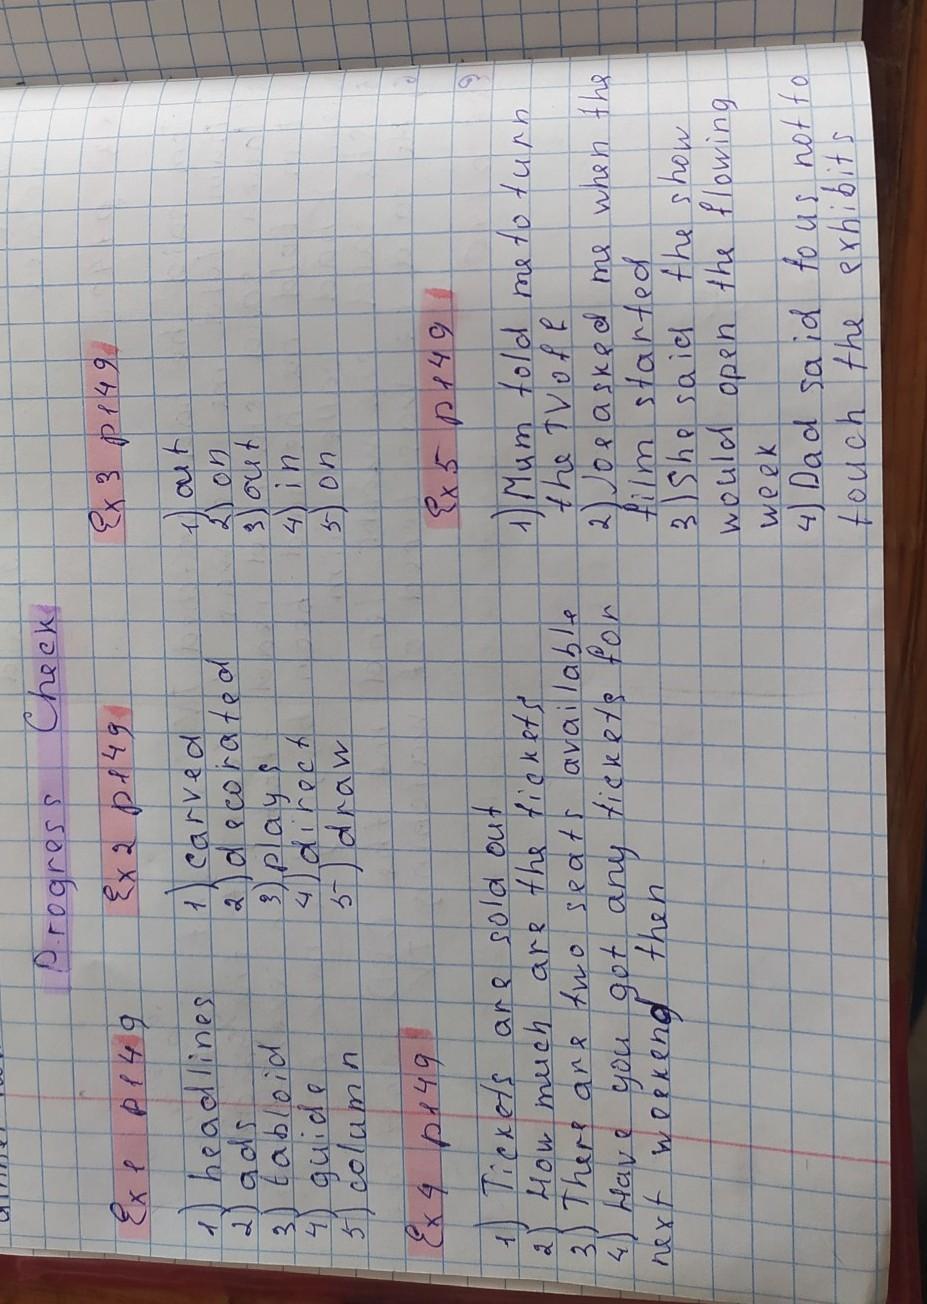 Progress Check
Ex 1 p149
1) headlines
2) ads
3) tabloid
4) guide
5) column
Ex 2 p149
1) carved
2) decorated
3) plays
4) direct
5) draw
Ex 3 p149
1) out
2) on
3) out
4) in
5) on
Ex 4 p149
1) Tickets are sold out
2) How much are the tickets
3) There are two seats available
4) Have you got any tickets for
next weekend then
Ex 5 p149
1) Mum told me to turn
the TV off
2) Joe asked me when the
film started
3) She said the show
would open the flowing
week
4) Dad said to us not to
touch the exhibits